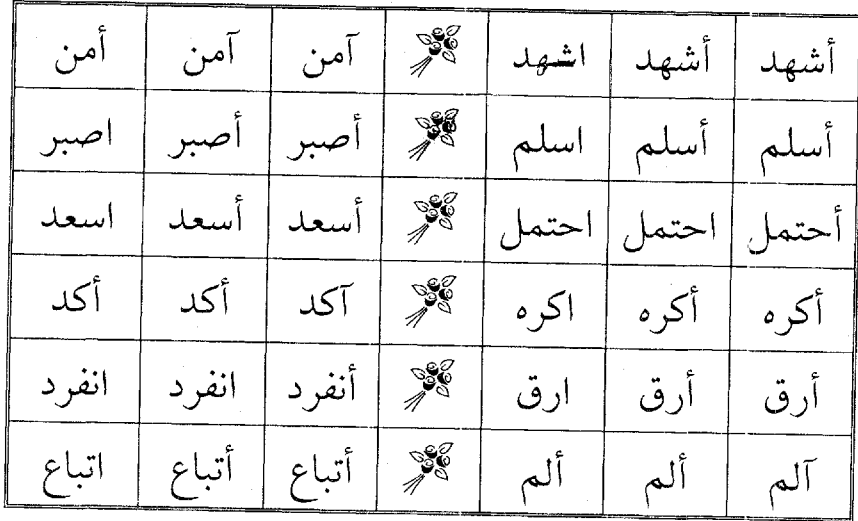 أشهد أشهد اشهد آمن آمن أمن
أسلم أسلم اسلم أصبر أصبر اصبر
أحتمل احتمل احتمل أسعد أسعد اسعد
أكره أكره اكره آكد أكد أكد
أرق أرق ارق أنفرد انفرد انفرد
آلم ألم ألم أتباع أتباع اتباع